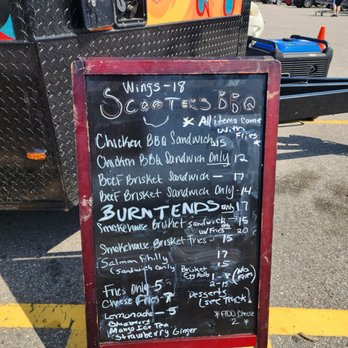 Wings - 18
Scooters BBQ
* All items come
with fries *
Chicken BBQ Sandwich 15
Chicken BBQ Sandwich Only 12
Beef Brisket Sandwich - 17
Beef Brisket Sandwich Only - 14
BURNTENDS only 17
Smokehouse Brisket Sandwich - 15
w/Fries - 20
Smokehouse Brisket Fries - 15
Salmon Philly 17
(Sandwich Only 15
Brisket
Egg Rolls 1 - 8 (No Fries)
2 - 15
Fries Only - 5
Cheese Fries - 7
Desserts
(See Truck)
Lemonade - 5
Blueberry
Mango Ice Tea
Strawberry Ginger
*ADD Cheese
2 *